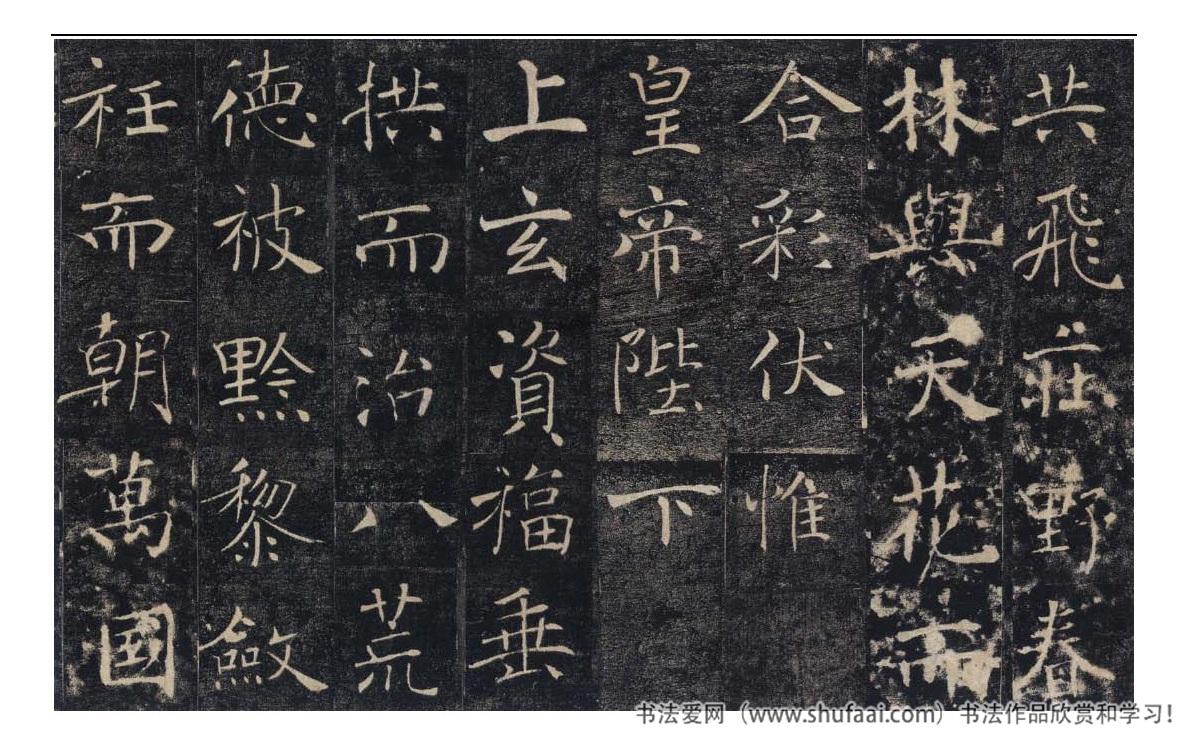 共飛莊野春
林與天花而
合彩伏惟
皇帝陛下
上玄資福垂
拱而治八荒
德被黔黎斂
衽而朝萬國
书法爱网（www.shufaai.com）书法作品欣赏和学习！